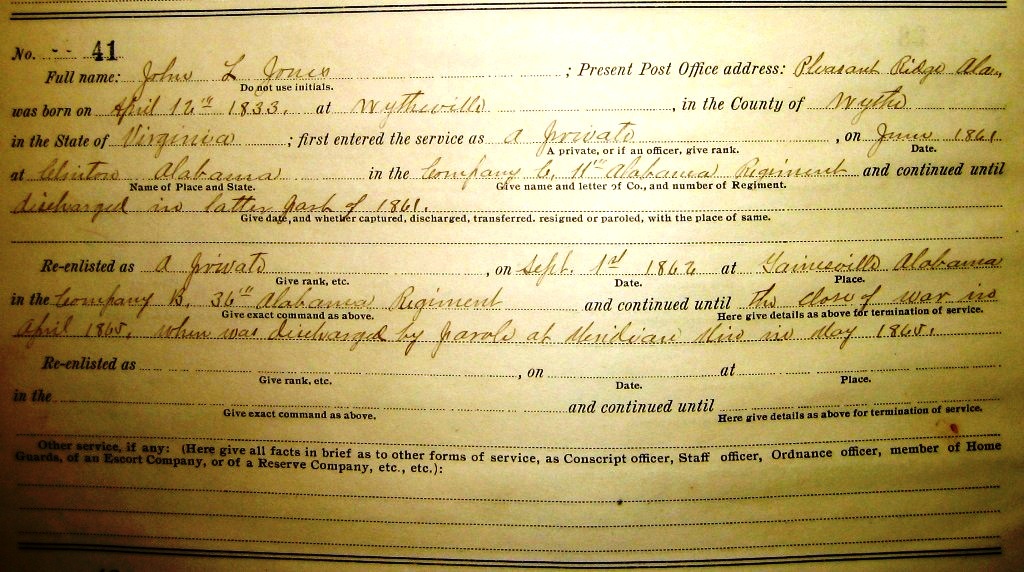 No. -- 41
Full name: John L Jones ; Present Post Office address: Pleasant Ridge Ala.,
Do not use initials.
was born on April 12th 1833. at Wytheville , in the County of Wythe
in the State of Virginia ; first entered the service as a private , on June 1861
A private, or if an officer, give rank. Date.
at Clinton Alabama in the Company C, 11th Alabama Regiment and continued until
Name of Place and State. Give name and letter of Co., and number of Regiment.
discharged in latter part of 1861.
Give date, and whether captured, discharged, transferred. resigned or paroled, with the place of same.
Re-enlisted as a private , on Sept. 1st 1862 at Gainesville Alabama
Give rank, etc. Date. Place.
in the Company B, 36th Alabama Regiment and continued until the close of war in
Give exact command as above. Here give details as above for termination of service.
April 1865, when was discharged by parole at Meridian Miss in May 1865.
Re-enlisted as , on at
Give rank, etc. Date. Place.
in the and continued until
Give exact command as above. Here give details as above for termination of service.
Other service, if any: (Here give all facts in brief as to other forms of service, as Conscript officer, Staff officer, Ordnance officer, member of Home
Guards, of an Escort Company, or of a Reserve Company, etc., etc.):